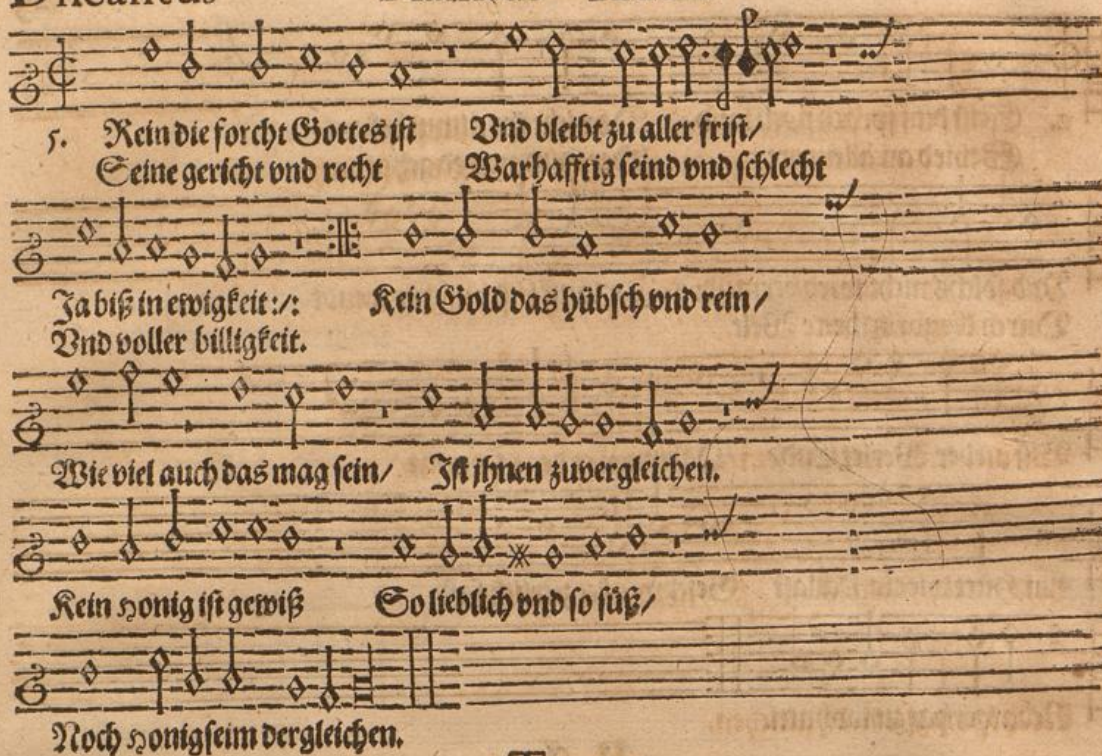 5. Rein die forcht Gottes ist Vnd bleibt zu aller frist/
Seine gericht vnd recht Warhafftig seind vnd schlecht
Ja biß in ewigkeit :/: Kein Gold das hübsch vnd rein /
Vnd voller billigkeit.
Wie viel auch das mag sein/ Ist jhnen zuvergleichen.
Kein Honig ist gewiß So lieblich vnd so süß/
Noch Honigseim dergleichen.